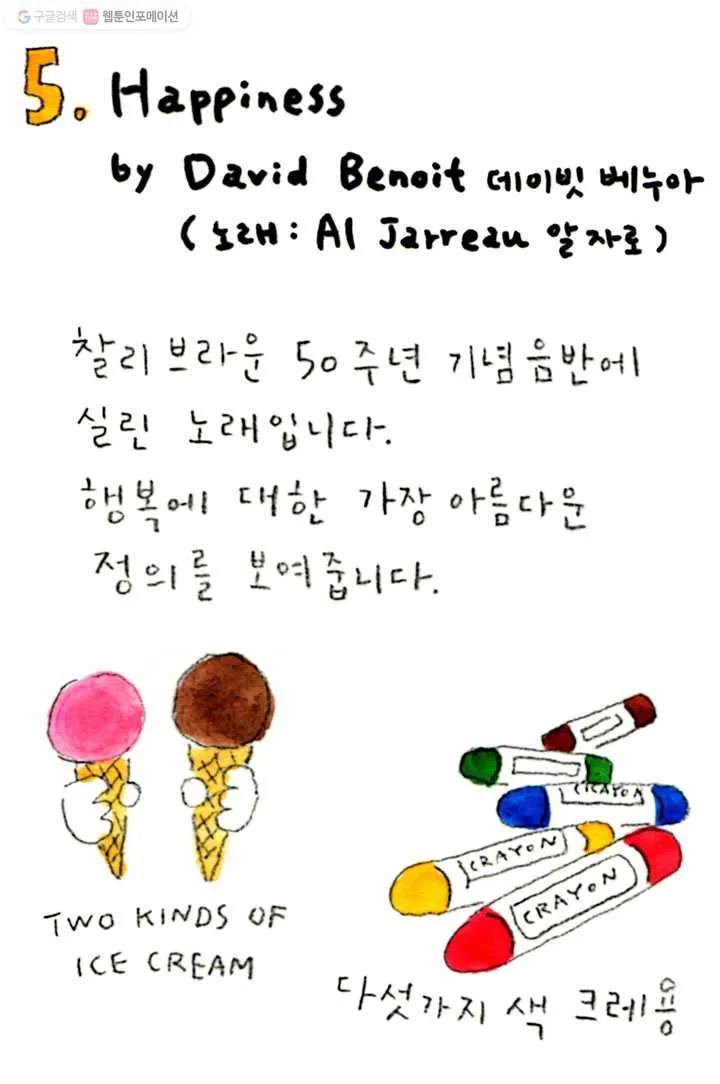 구글검색 웹툰인포메이션
5. Happiness
by David Benoit 데이빗 베누아
(노래: Al Jarreau 알 자로)
찰리 브라운 50주년 기념 음반에
실린 노래입니다.
행복에 대한 가장 아름다운
정의를 보여줍니다.
CRAYON
CRAYON
CRAYON
TWO KINDS OF
ICE CREAM
다섯가지 색 크레용